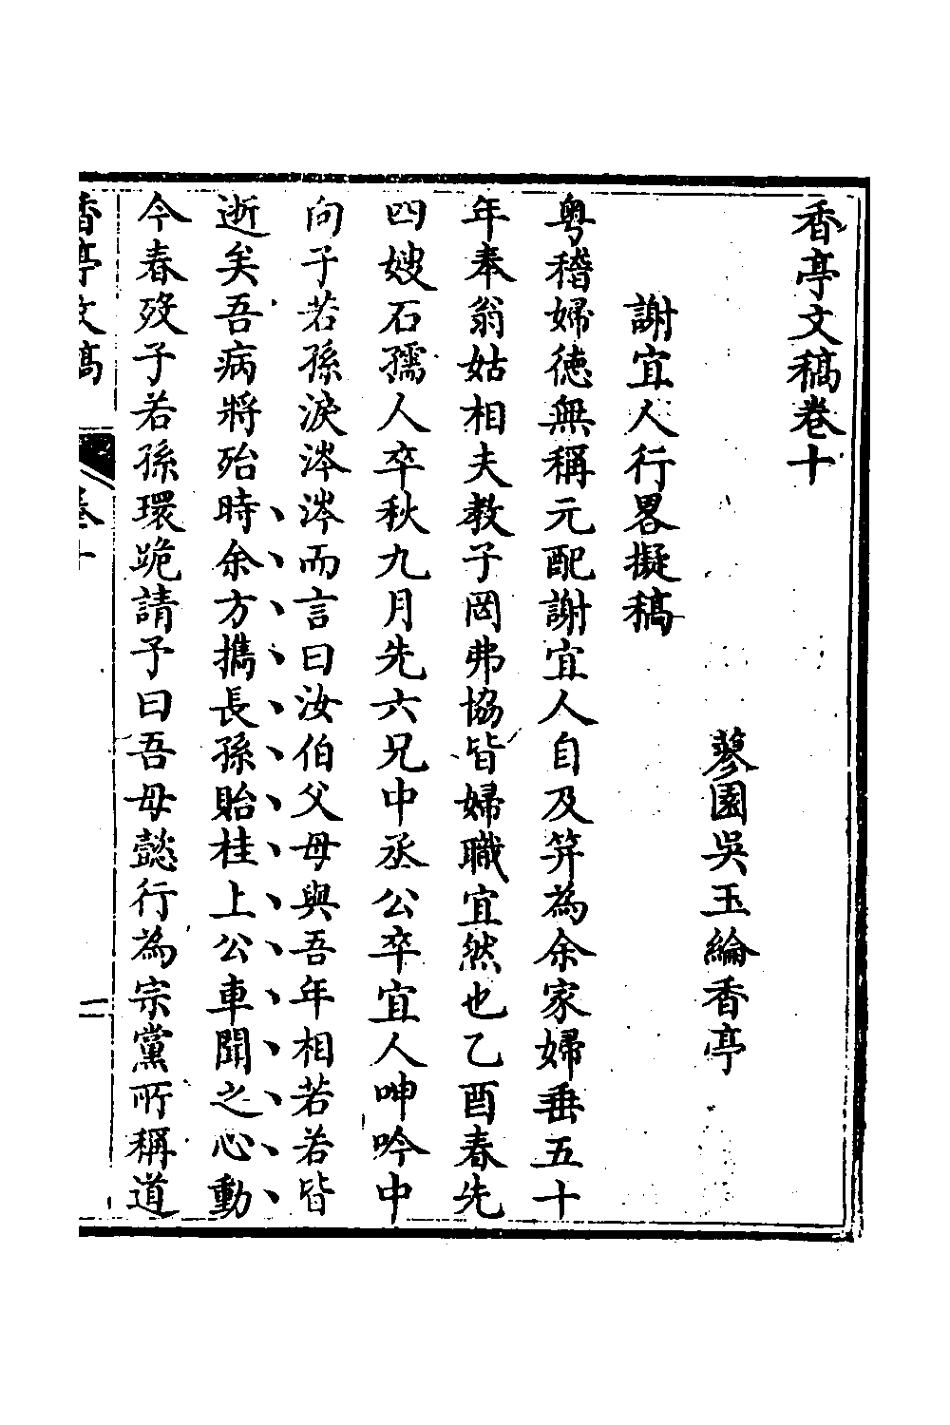 香亭文稿卷十
蓼園吳玉綸香亭
謝宜人行畧擬稿
粤稽婦德無稱元配謝宜人自及笄為余家婦垂五十
年奉翁姑相夫教子罔弗協皆婦職宜然也乙酉春先
四嫂石孺人卒秋九月先六兄中丞公卒宜人呻吟中
向子若孫淚涔涔而言曰汝伯父母與吾年相若若皆
逝矣吾病將殆時余方攜長孫貽桂上公車聞之心動
今春歿子若孫環跪請予曰吾母懿行為宗黨所稱道
香亭文稿
卷十
一